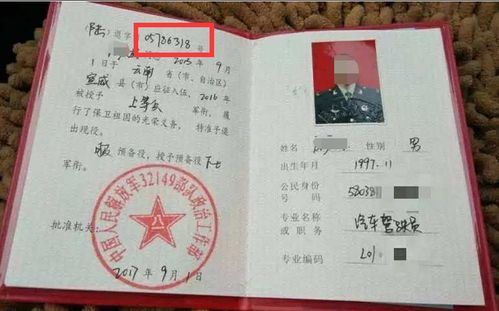 (陆)退字05786318号
2015年9
1日于云南省(市、自治区)
宣威县(市)应征入伍，2016
被授予上等兵军衔，履
行了保卫祖国的光荣义务，特准予退
出现役。
服预备役，授予预备役下士
军衔。
批准机关：
中国人民解放军32149部队政治工作部
2017年9月1日
姓名 性别 男
出生年月 1997.11
公民身份
号码 530381
专业名称
或职务 汽车驾驶员
专业编码 201